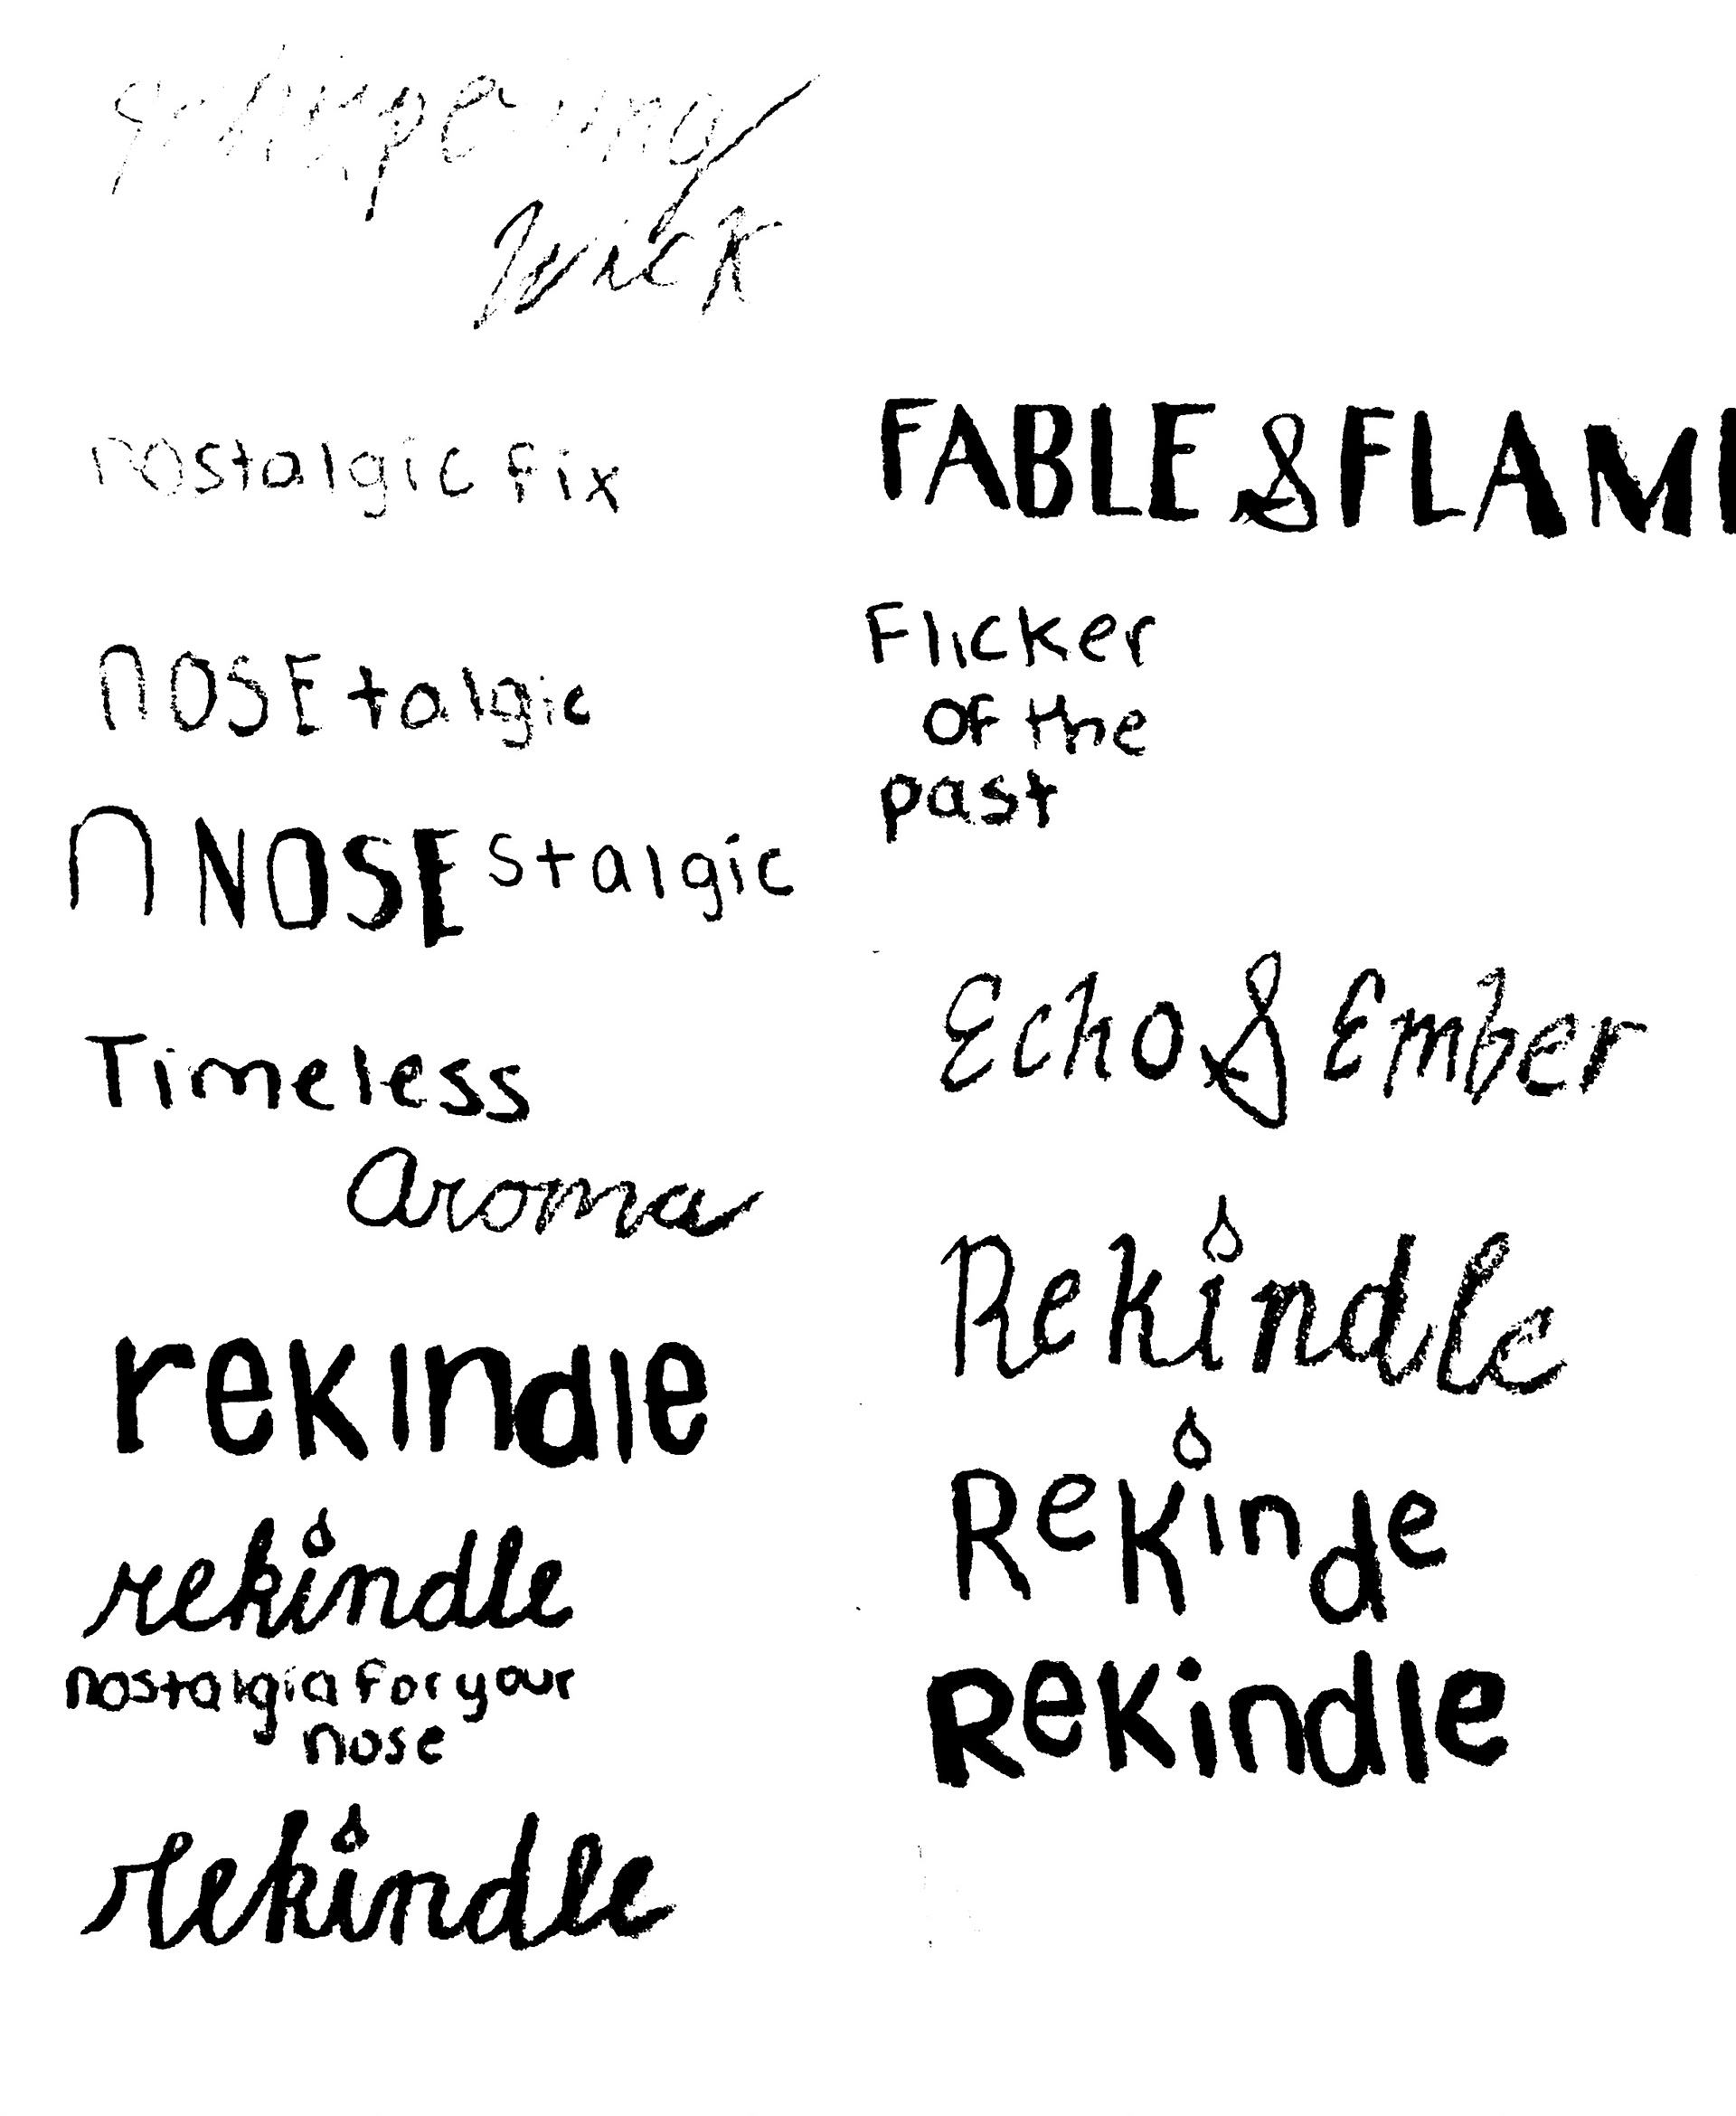 Wick
nostalgic fix
nOSE talgic
n NOSE stalgic
Timeless
aroma
rekindle
rekindle
nostalgia for your
nose
rekindle
FABLE & FLAM
Flicker
of the
past
Echo & Ember
Rekindle
Rekinde
Rekindle